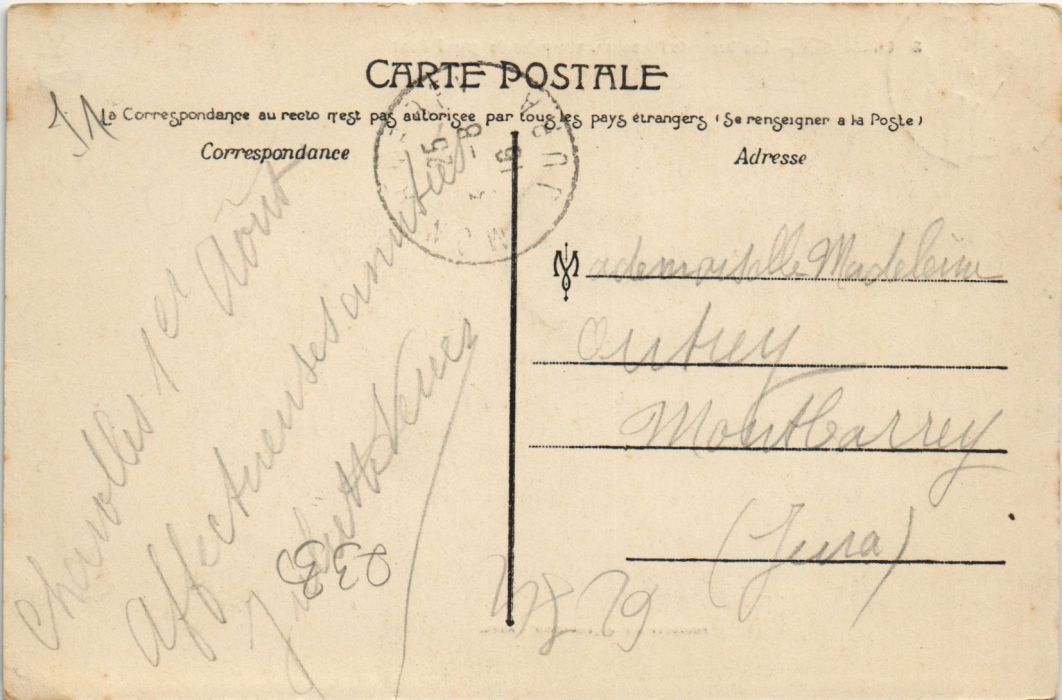 CARTE POSTALE
La Correspondance au recto n'est pas autorisée par tous les pays étrangers (Se renseigner à la Poste)
Correspondance
Adresse
51
JURA
25 - 8
16
Charolles 1er Août
Affectueuses amitiés
Juliette
Mademoiselle Madeleine
Outrey
Montbarrey
(Jura)